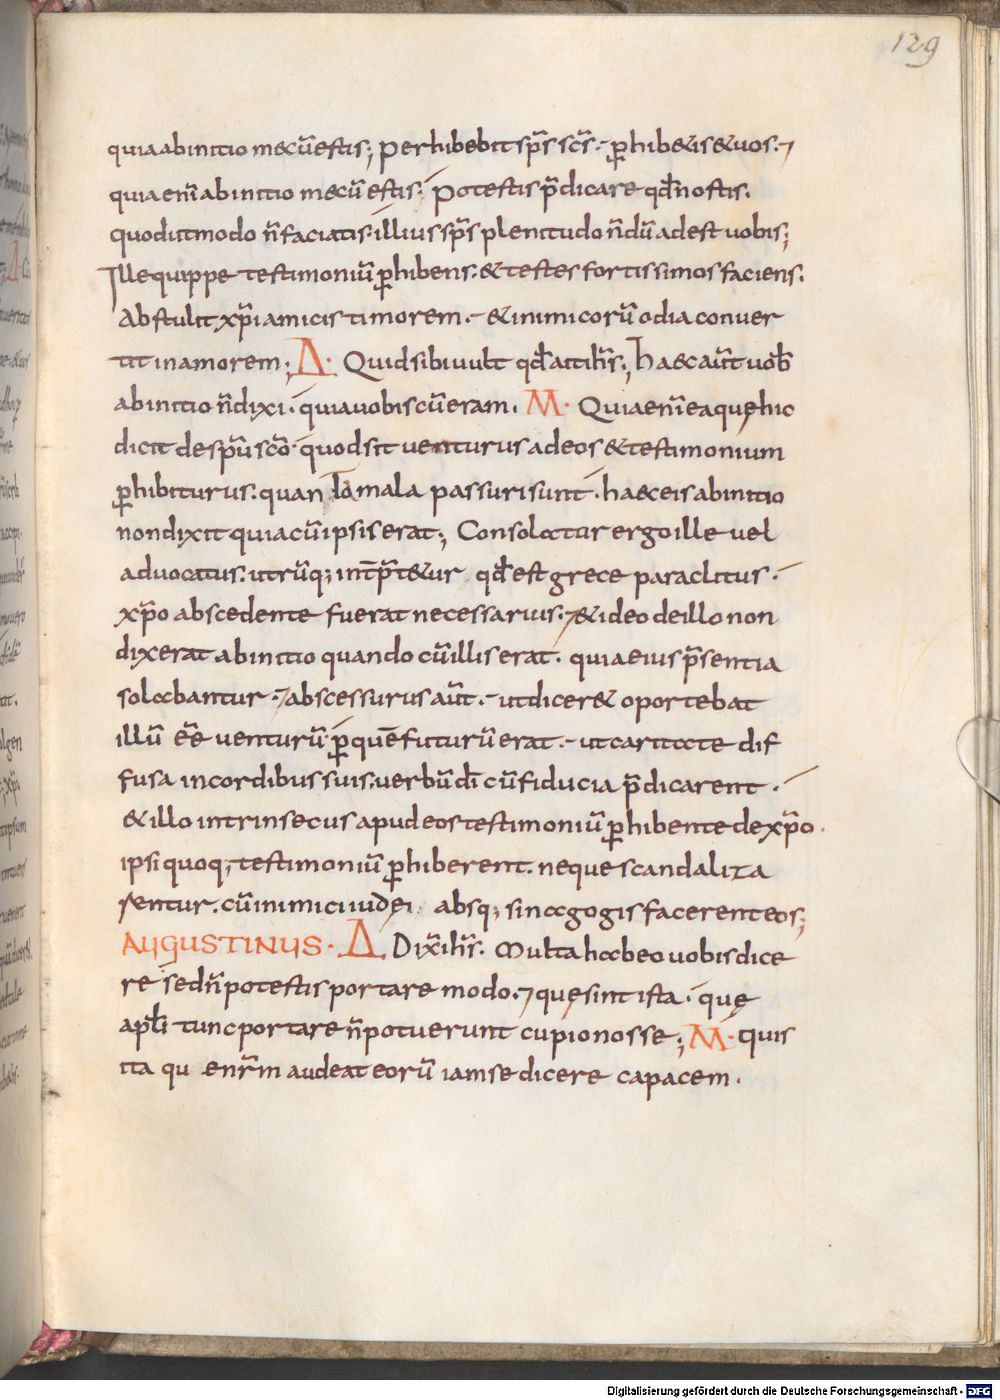 129
quia ab initio mecū estis; perhibebit sp̄s sc̄s. ꝑhib&is & uos.
quia enī ab initio mecū estis. Potestis p̄dicare qd̄ nostis.
quod ut modo n̄ faciatis. illius sp̄s plenitudo n̄dū adest uobis;
Ille quippe testimoniū ꝑhibens. & testes fortissimos faciens.
Abstulit xp̄i amicis timorem. & inimicorū odia conuer
tit in amorem; Δ. Quid sibi uult qd̄ ait ih̄s; Haec aūt uob̄
ab initio n̄ dixi. quia uobiscū eram. M. Quia enī ea quę hic
dicit de sp̄u sc̄o quod sit uenturus ad eos & testimonium
ꝑhibiturus. quando mala passuri sunt. haec eis ab initio
non dixit quia cū ipsis erat; Consolator ergo ille uel
aduocatus. utrūq; int̄p̄t&ur qd̄ est grece paraclitus.
xp̄o abscedente fuerat necessarius. & ideo de illo non
dixerat ab initio quando cū illis erat. quia eius p̄sentia
solabantur. abscessurus aūt. ut dicer& oportebat
illū ēē uenturū. ꝑ quē futurū erat. ut caritate dif
fusa in cordibus suis. uerbū dī cū fiducia p̄dicarent.
& illo intrinsecus apud eos testimoniū ꝑhibente de xp̄o.
ipsi quoq; testimoniū ꝑhiberent. neque scandaliza
rentur. cū inimici iudei absq; sinagogis facerent eos;
AUGUSTINUS. Δ. Dix̄ ih̄s. Multa habeo uobis dice
re sed n̄ potestis portare modo. quę sint ista. quę
apl̄i tunc portare n̄ potuerunt cupio nosse; M. quis
ita qu enr̄m audeat eorū iam se dicere capacem.
Digitalisierung gefördert durch die Deutsche Forschungsgemeinschaft - DFG